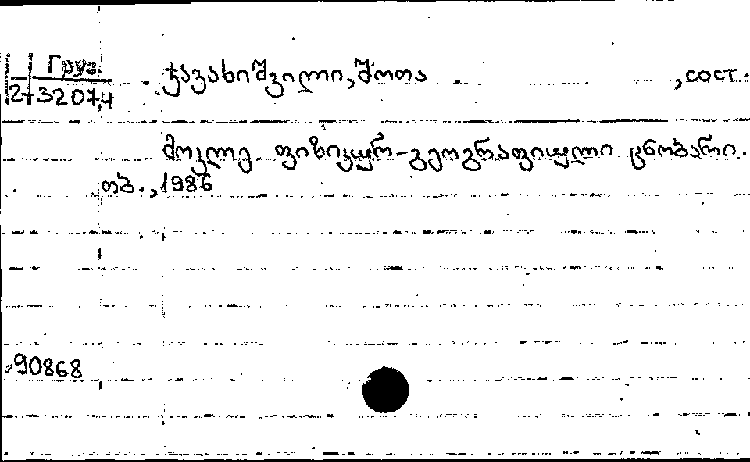 Груз.
2-3207,4
ჯავახიშვილი, შოთა , сост.
მოკლე ფიზიკურ-გეოგრაფიული ცნობარი.
თბ., 1986
90868